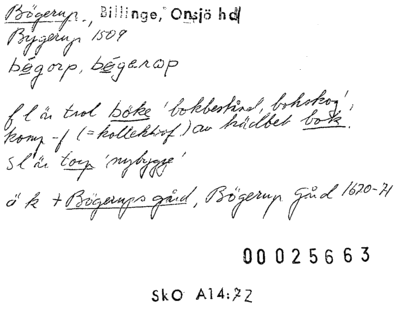 Bögerup, Billinge, Onsjö hd
Bygerup 1509
bégorp, bégarop
f l är trol böke 'bokbestånd, bokskog',
komp -f (= kollektivf) av trädbet bok.
s l är torp 'nybygge'
ä k + Bögerups gård, Bögerup Gård 1670-71
00025663
SkO A14:72